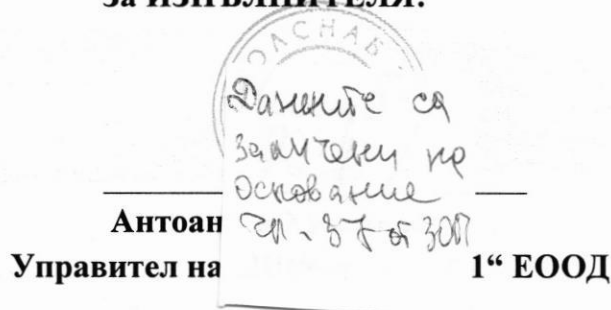 За ИЗПЪЛНИТЕЛЯ:
ОЛСНАБ
Данните са
заличени на
основание
чл. 37 от ЗОП
Антоан
Управител на 1“ ЕООД